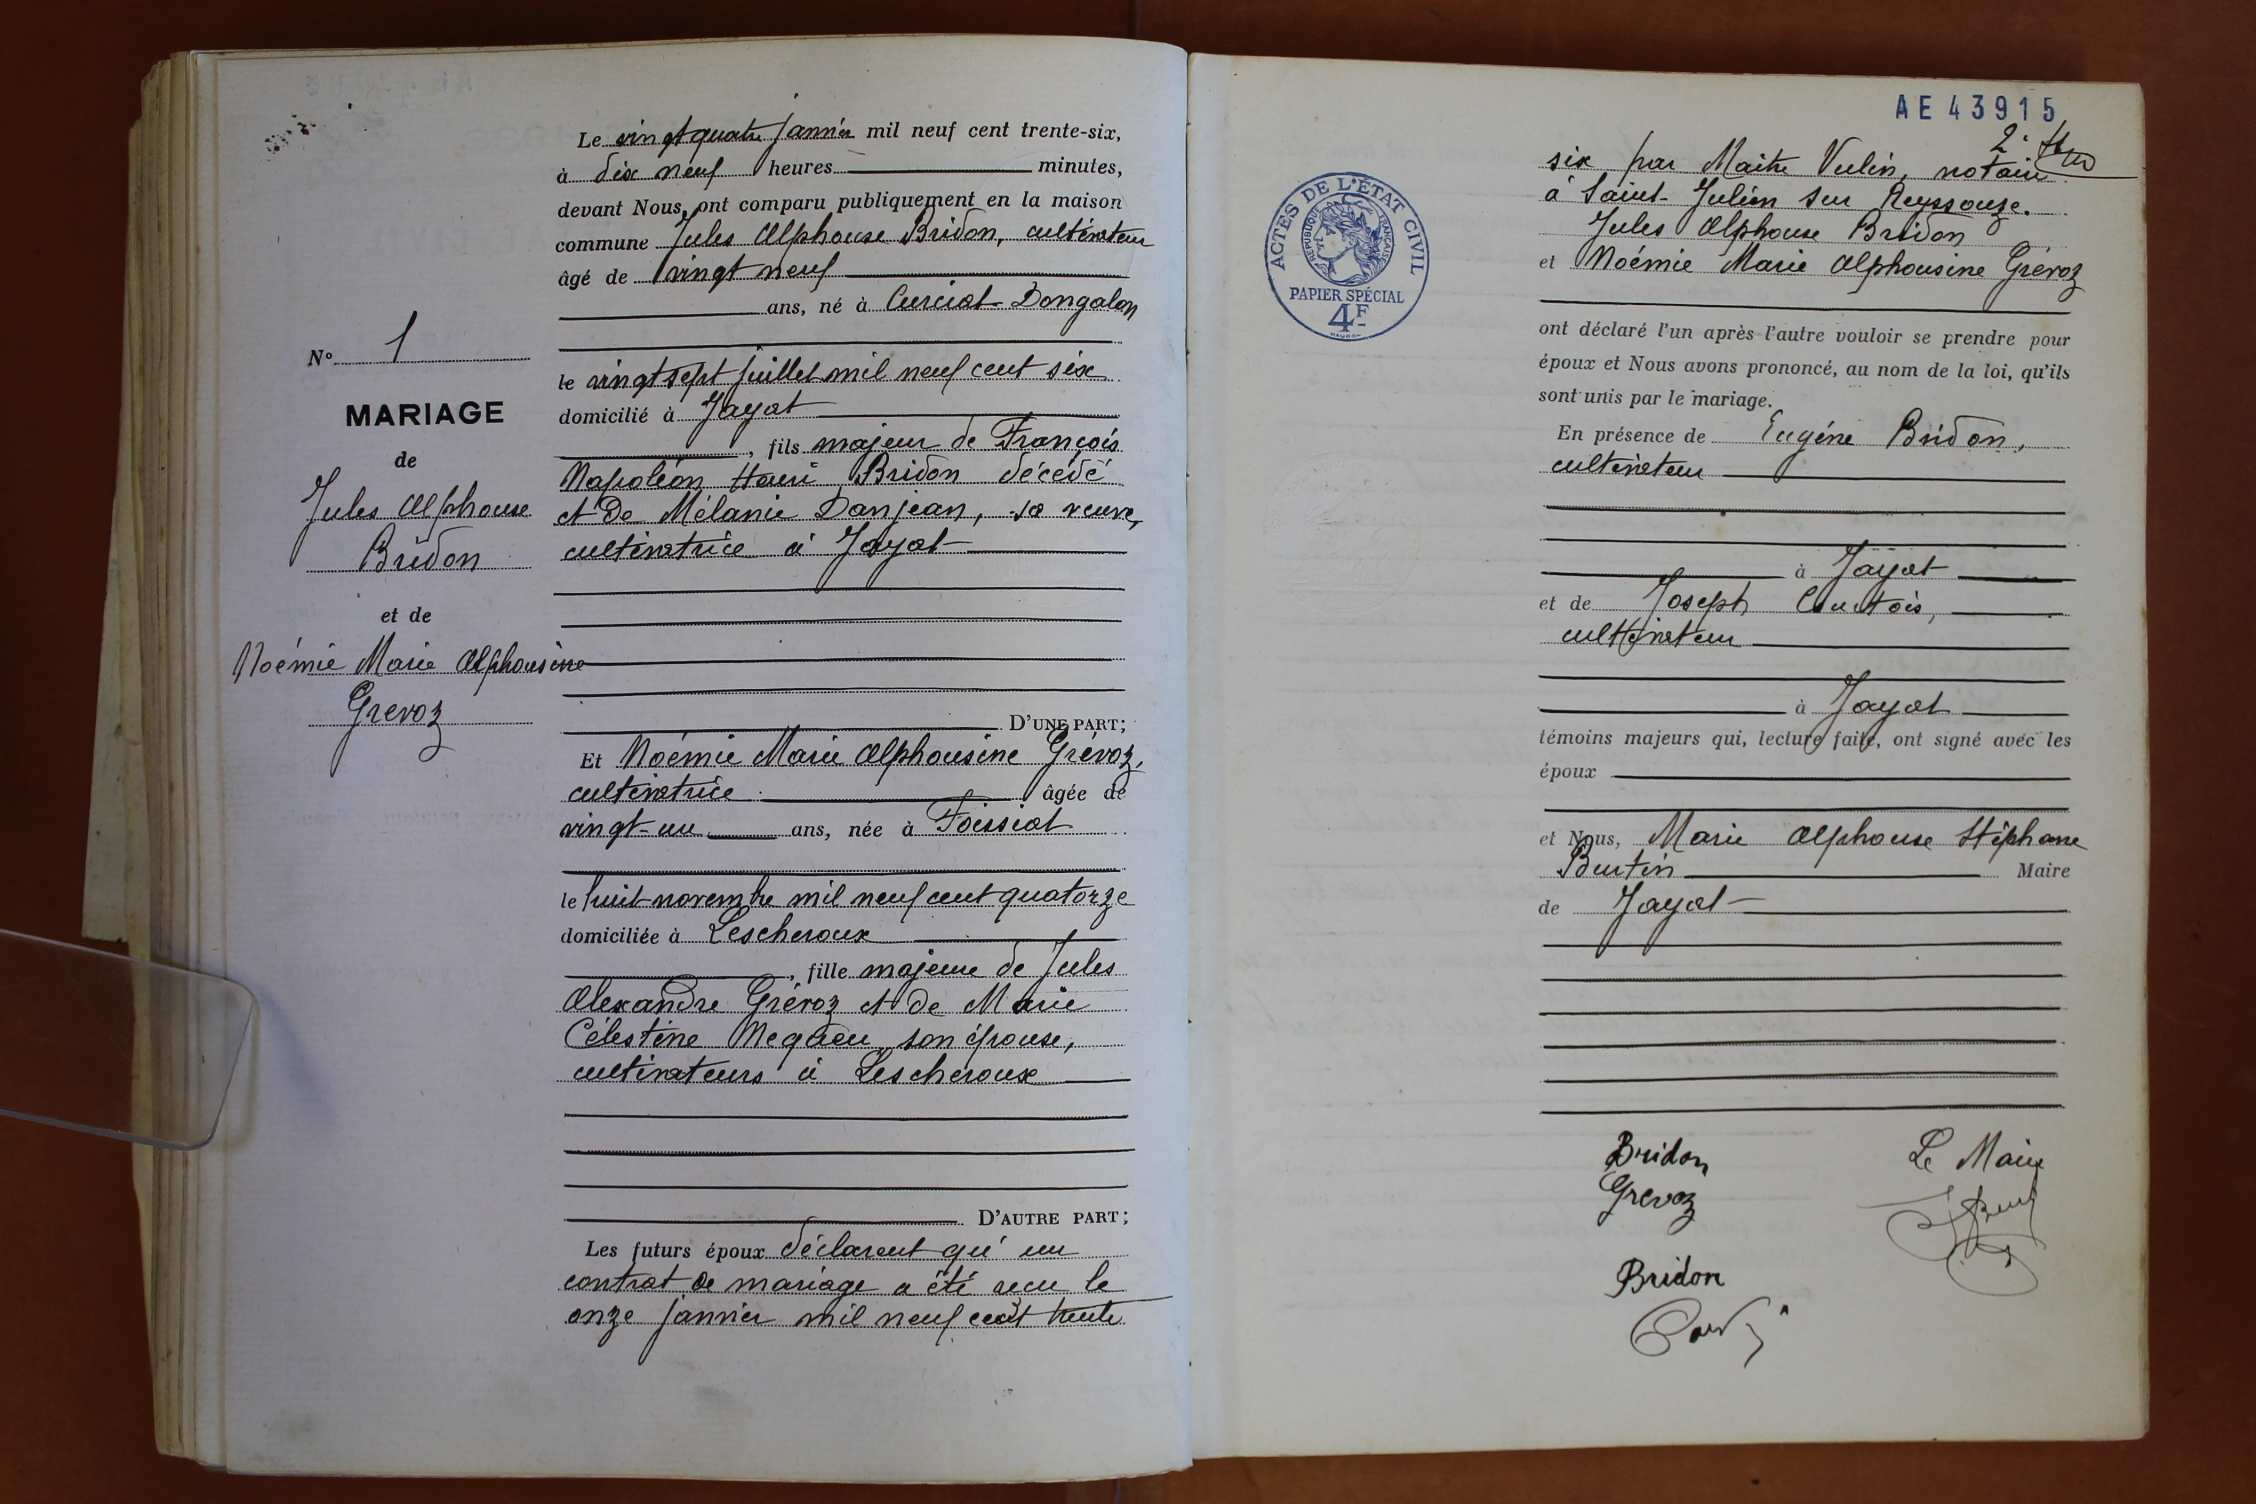 N° 1
MARIAGE
de
Jules Alphonse
Bridon
et de
Noémie Marie Alphonsine
Grevoz
Le vingt quatre janvier mil neuf cent trente-six,
à dix neuf heures minutes,
devant Nous, ont comparu publiquement en la maison
commune Jules Alphonse Bridon, cultivateur
âgé de vingt neuf
ans, né à Curciat-Dongalon
le vingt sept juillet mil neuf cent six
domicilié à Jayat
, fils majeur de François
Napoléon Henri Bridon décédé
et de Mélanie Danjean, sa veuve,
cultivatrice à Jayat
D'UNE PART;
Et Noémie Marie Alphonsine Grévoz,
cultivatrice âgée de
vingt-un ans, née à Foissiat
le huit novembre mil neuf cent quatorze
domiciliée à Lescheroux
, fille majeure de Jules
Alexandre Grévoz et de Marie
Célestine son épouse,
cultivateurs à Lescheroux
D'AUTRE PART;
Les futurs époux déclarent qu'un
contrat de mariage a été recu le
onze janvier mil neuf cent trente
AE 43915
2e
ACTES DE L'ÉTAT CIVIL
RÉPUBLIQUE FRANÇAISE
PAPIER SPÉCIAL
4F
six par Maitre Vulin, notaire
à Saint-Julien sur Reyssouze.
Jules Alphonse Bridon
et Noémie Marie Alphonsine Grévoz
ont déclaré l'un après l'autre vouloir se prendre pour
époux et Nous avons prononcé, au nom de la loi, qu'ils
sont unis par le mariage.
En présence de Eugène Bridon,
cultivateur
à Jayat
et de Joseph Courtois,
cultivateur
à Jayat
témoins majeurs qui, lecture faite, ont signé avec les
époux
et Nous, Marie Alphonse Stéphane
Burtin Maire
de Jayat
Bridon
Grevoz
Le Maire
Bridon